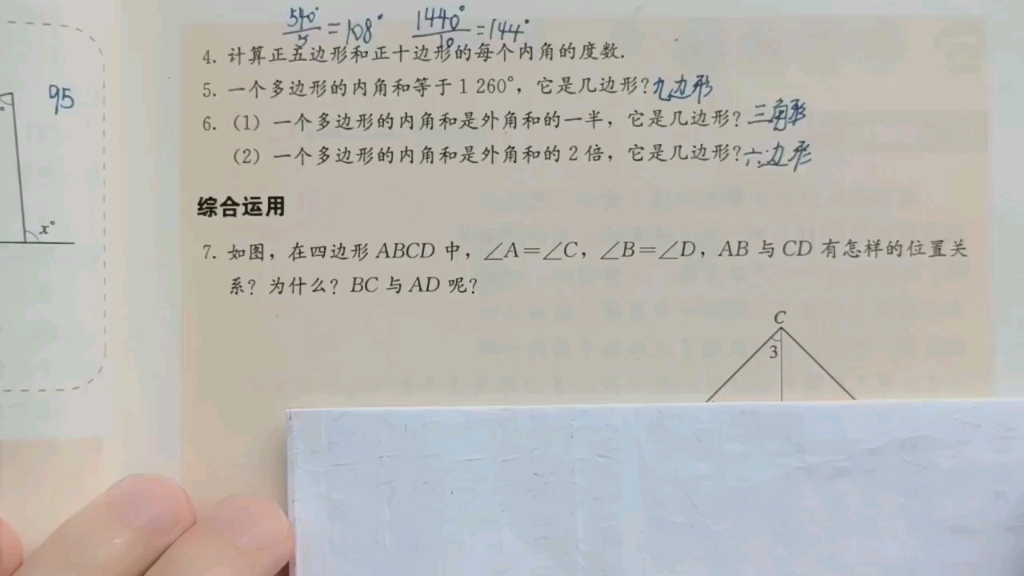 540°/5=108° 1440°/10=144°
4. 计算正五边形和正十边形的每个内角的度数.
5. 一个多边形的内角和等于1 260°，它是几边形?九边形
6. (1) 一个多边形的内角和是外角和的一半，它是几边形?三角形
(2) 一个多边形的内角和是外角和的2倍，它是几边形?六边形
95
x°
综合运用
7. 如图，在四边形ABCD中，∠A=∠C，∠B=∠D，AB与CD有怎样的位置关
系? 为什么? BC与AD呢?
C
3